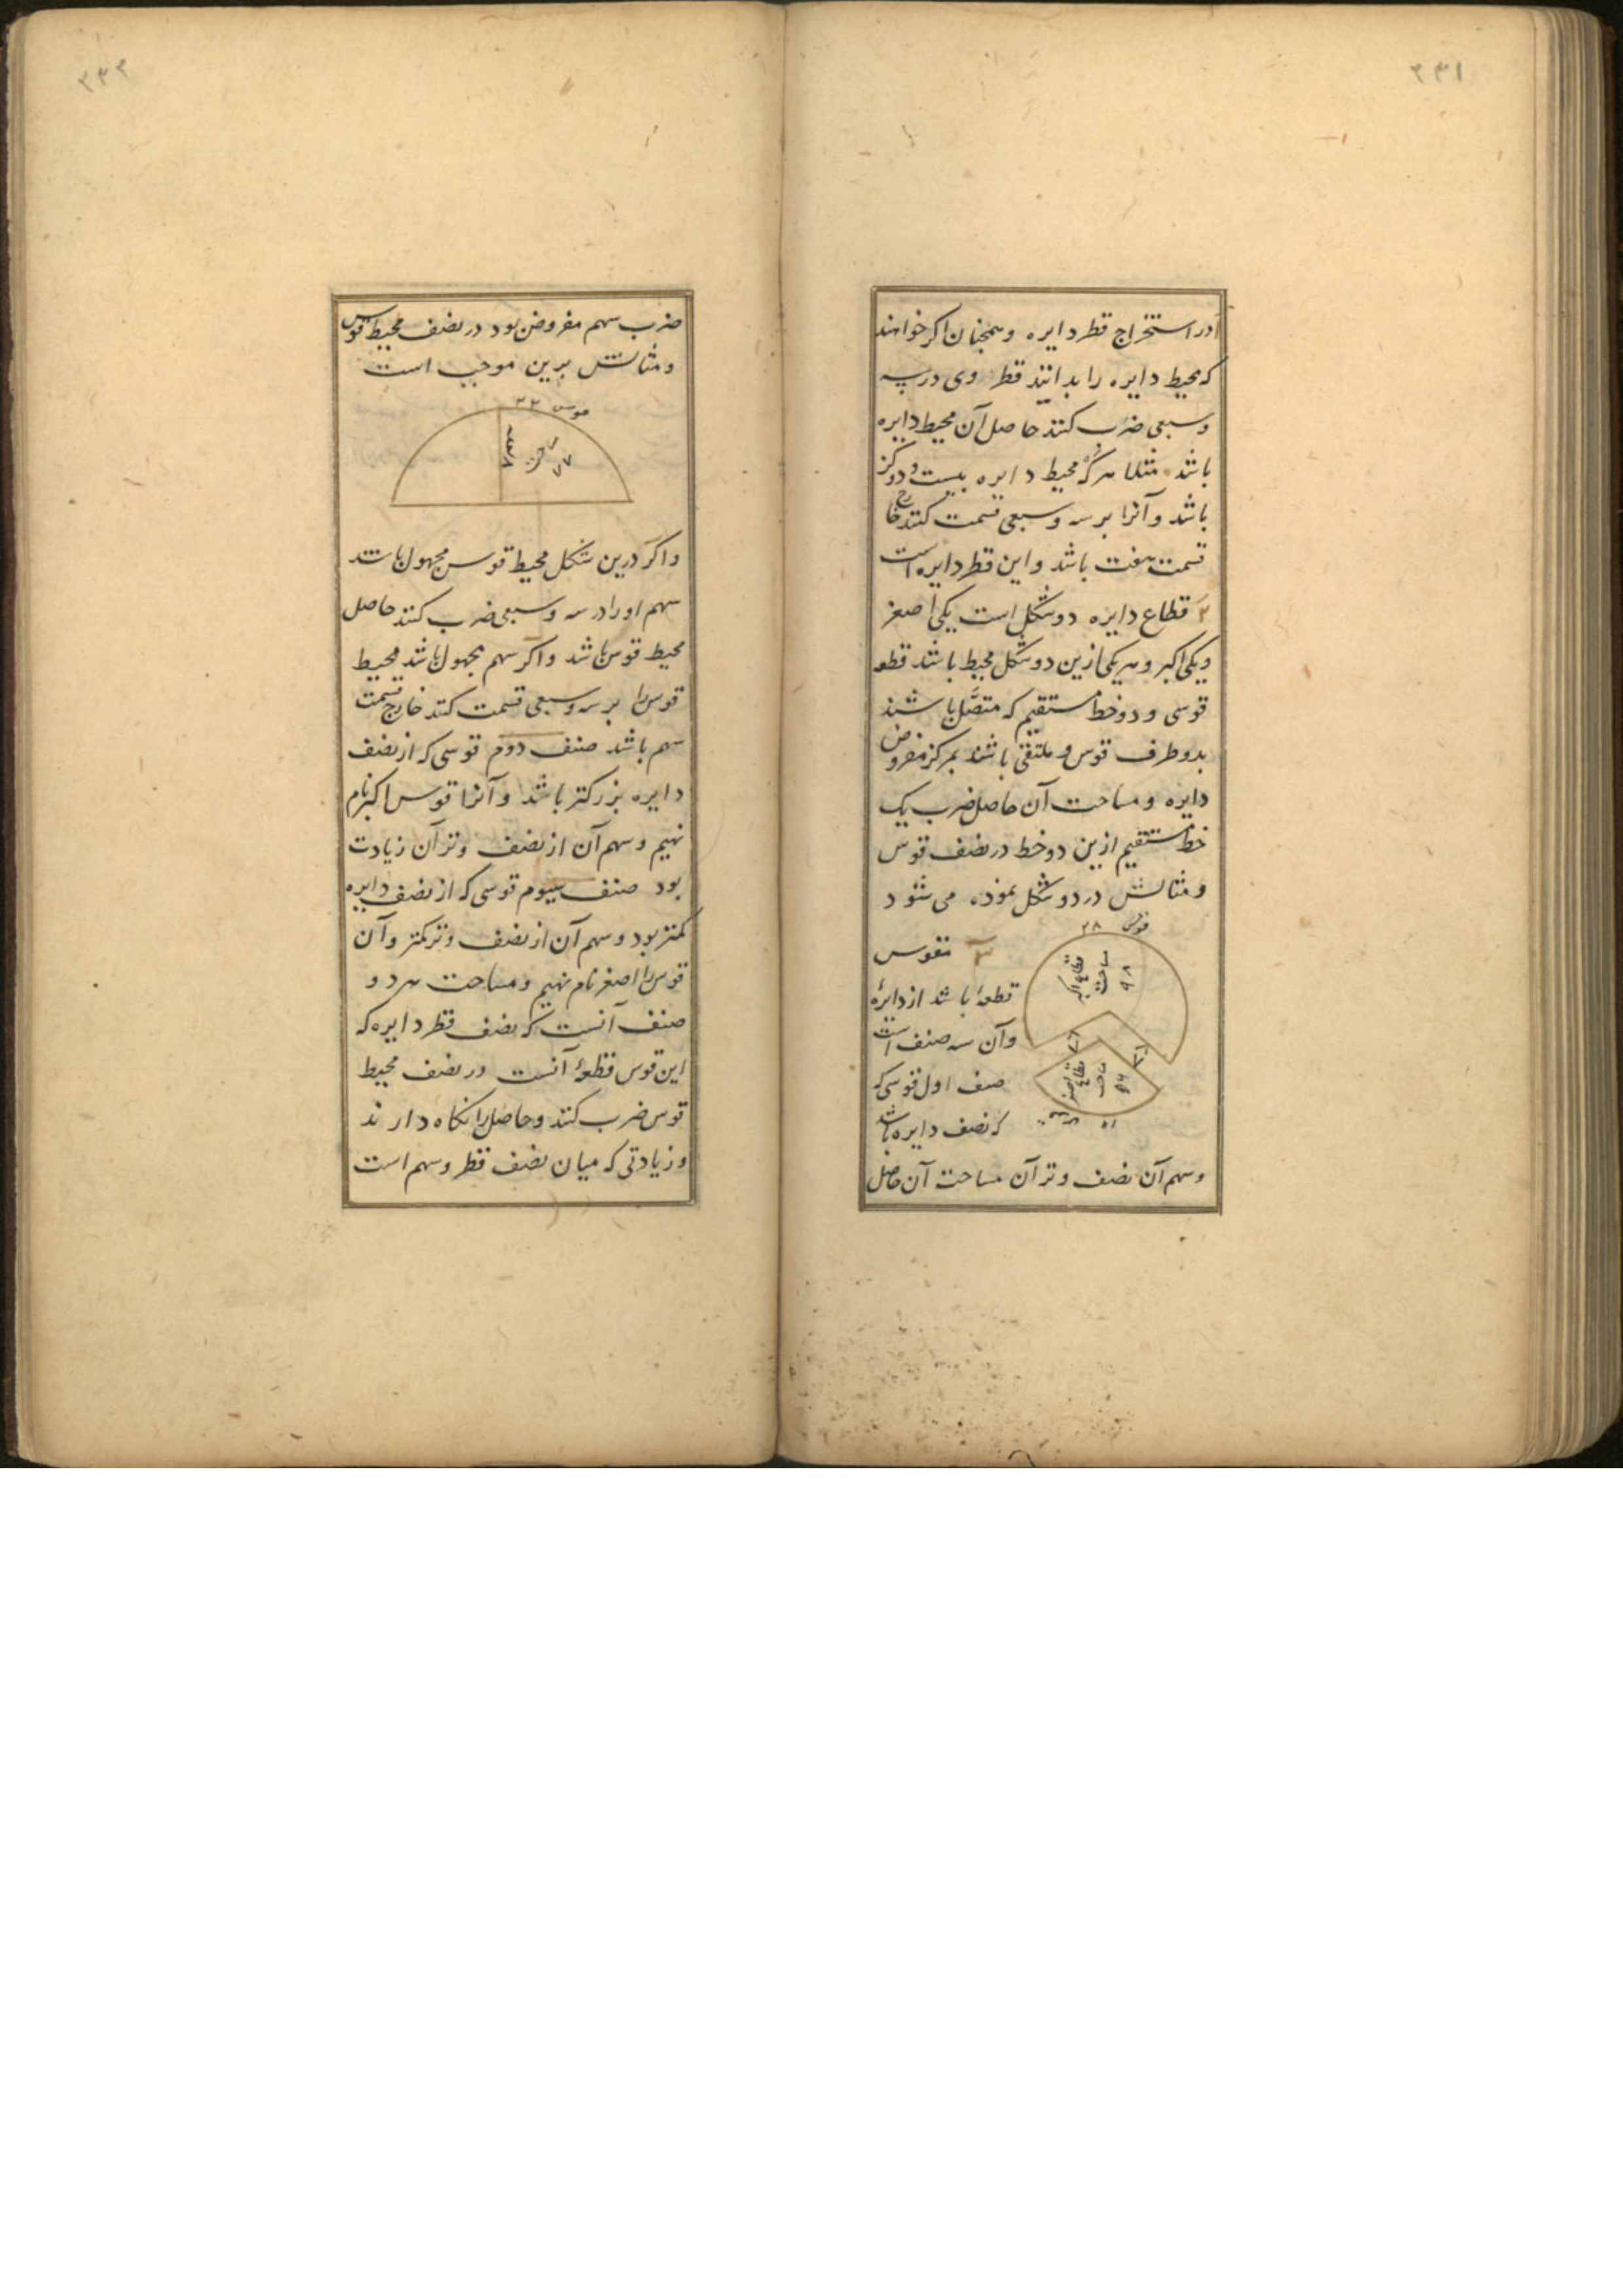 ۲۳۱
در استخراج قطر دایره و همچنان اکر خواهند
که محیط دایره را بدانند قطر وی در سه
و سبعی ضرب کنند حاصل آن محیط دایره
باشد مثلا هرکه محیط دایره بیست و دو کز
باشد و آنرا بر سه و سبعی قسمت کنند خارج
قسمت هفت باشد و این قطر دایره است
۲ قطاع دایره دو شکل است یکی اصغر
و یکی اکبر و هر یکی ازین دو شکل محیط باشد قطعه
قوسی و دو خط مستقیم که متصل باشند
بدو طرف قوس و ملتقی باشند بمرکز مفروض
دایره و مساحت آن حاصل ضرب یک
خط مستقیم ازین دو خط در نصف قوس
و مثالش در دو شکل نموده می شود
قوس ۲۸
قطاع اکبر
مساحت
۹۸
۷
۷
قطاع اصغر
مساحت
۵۶
۳ مقوس
قطعهٔ باشد از دایرهٔ
و آن سه صنف است
صنف اول قوسی که
که نصف دایره باشد
و سهم آن نصف وتر آن مساحت آن حاصل
۲۳۲
ضرب سهم مفروض بود در نصف محیط قوس
و مثالش برین موجب است
قوس ۲۲
سهم ۷
مساحت
۷۷
و اکر درین شکل محیط قوس مجهول باشد
سهم او را در سه و سبعی ضرب کنند حاصل
محیط قوس باشد و اکر سهم مجهول باشد محیط
قوس را بر سه و سبعی قسمت کنند خارج قسمت
سهم باشد صنف دوم قوسی که از نصف
دایره بزرکتر باشد و آنرا قوس اکبر نام
نهیم و سهم آن از نصف وتر آن زیادت
بود صنف سیوم قوسی که از نصف دایره
کمتر بود و سهم آن از نصف وتر کمتر و آن
قوس را اصغر نام نهیم و مساحت هر دو
صنف آنست که نصف قطر دایره که
این قوس قطعهٔ آنست در نصف محیط
قوس ضرب کنند و حاصل را نکاه دارند
و زیادتی که میان نصف قطر و سهم است